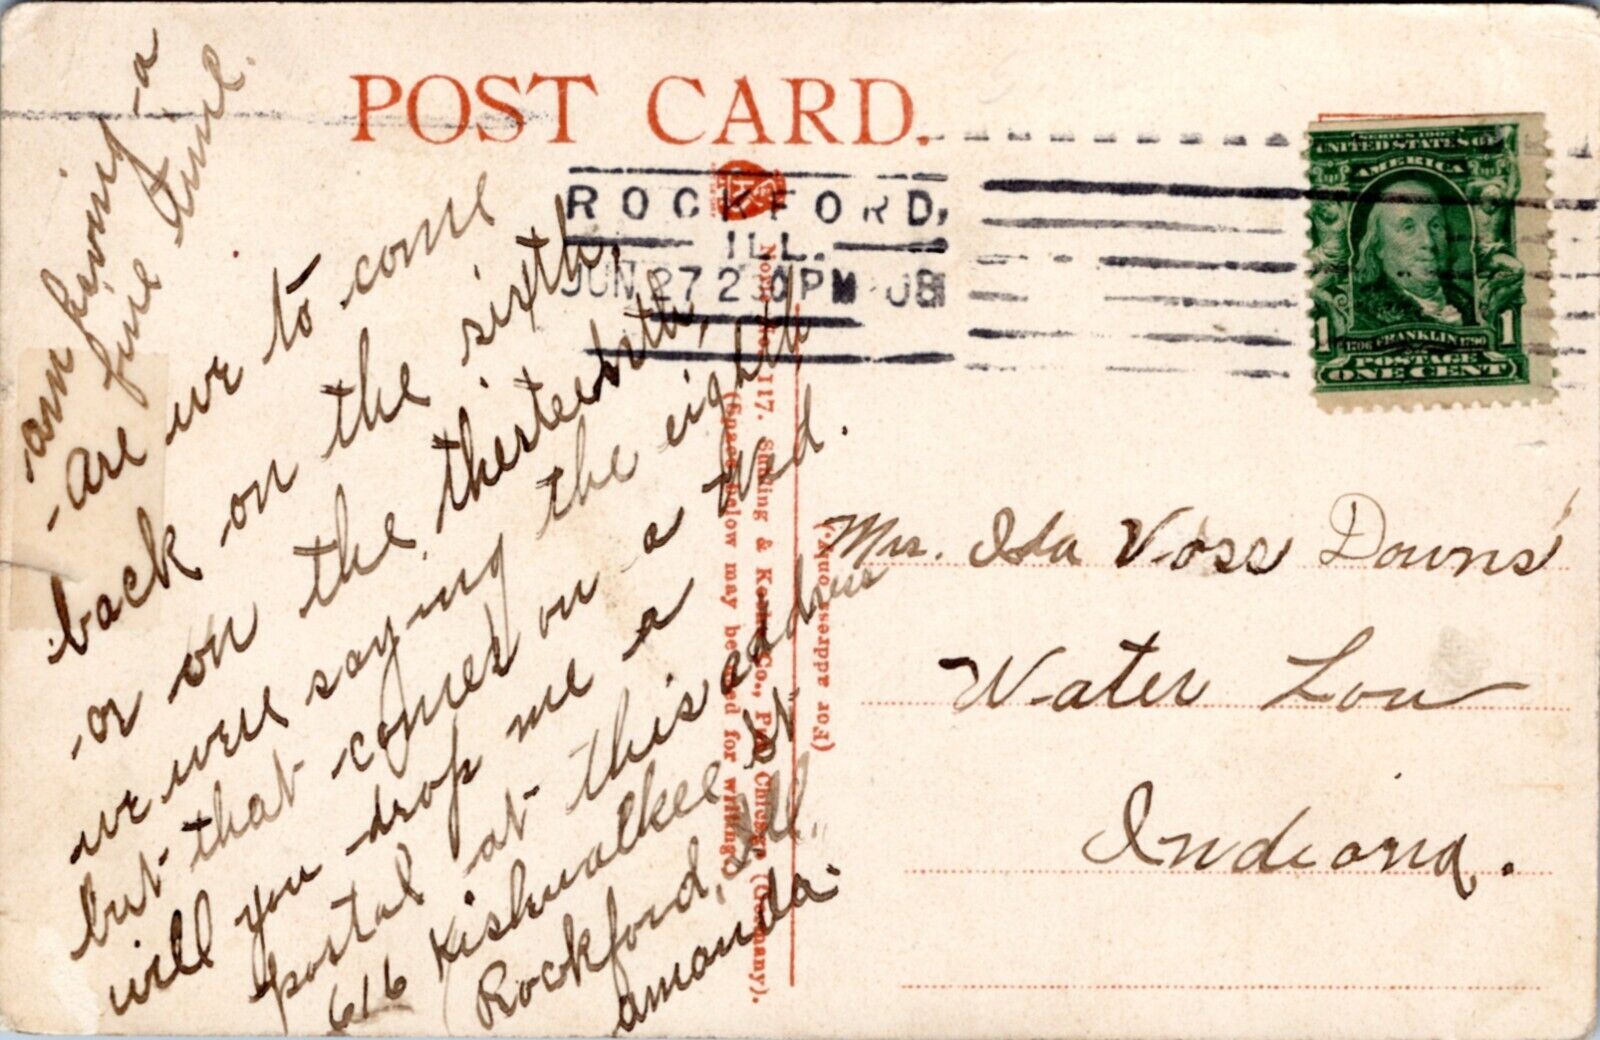 POST CARD.
ROCKFORD,
ILL.
JUN 27 2 30 PM 08
SERIES 1902
UNITED STATES OF
AMERICA
1 FRANKLIN 1
1706 1790
POSTAGE
ONE CENT
am having a
fine time.
Are we to come
back on the sixth,
or on the therteenth,
we were saying the eighth
but that comes on a Wed.
will you drop me a
postal at this address
616 Kishwalkee St
Rockford, Ill.
Amanda.
117.
(Space below may be used for writing)
Co., Chicago (Germany).
(For address only.)
Mrs. Ida Voss Downs
Water Lou
Indiana.